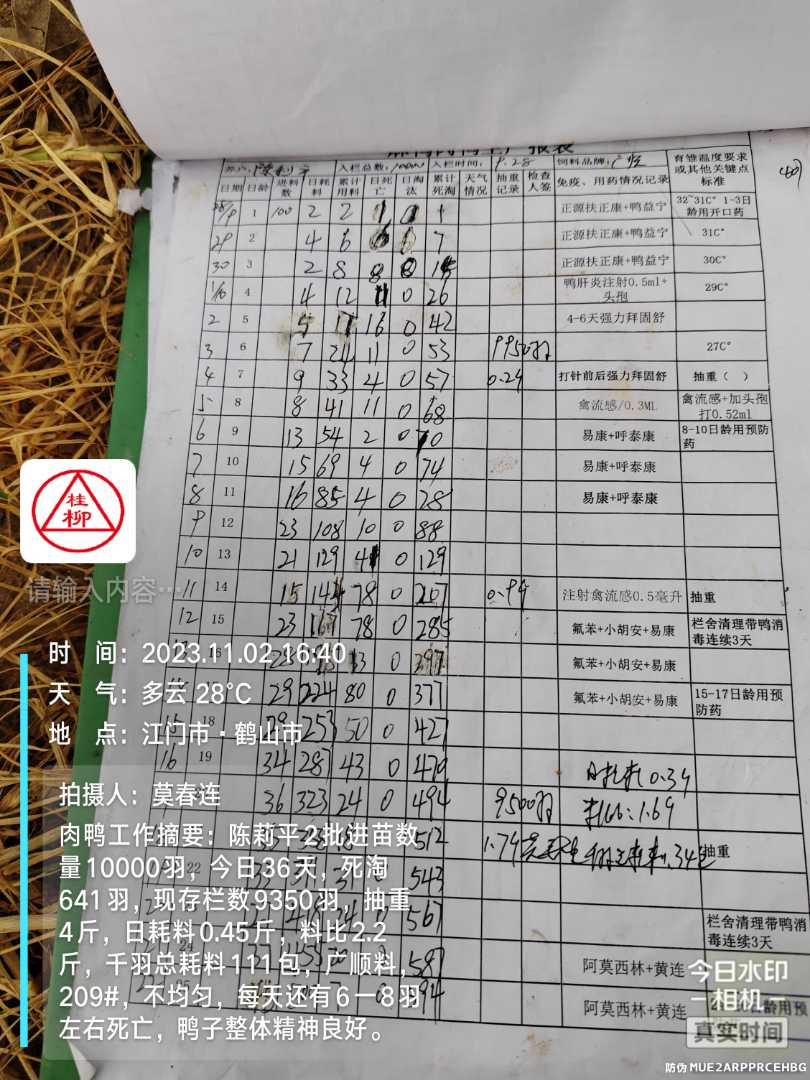 入栏总数： 入栏时间：9.28 饲料品牌：
育雏温度要求或其他关键点标准
日期 日龄 进料数 日耗料 累计用料 日死亡 日淘汰 累计死淘 天气情况 抽重记录 检查人签 免疫、用药情况记录
1 100 2 2 正源扶正康+鸭益宁 32~31C° 1-3日龄用开口药
29 2 4 6 7 正源扶正康+鸭益宁 31C°
30 3 2 8 8 0 15 正源扶正康+鸭益宁 30C°
4 4 12 11 0 26 鸭肝炎注射0.5ml+头孢 29C°
2 5 5 17 16 0 42 4-6天强力拜固舒
3 6 7 24 11 0 53 9950羽 27C°
4 7 9 33 4 0 57 0.29 打针前后强力拜固舒 抽重（ ）
5 8 8 41 11 0 68 禽流感/0.3ML 禽流感+加头孢打0.52ml
6 9 13 54 2 0 70 易康+呼泰康 8-10日龄用预防药
7 10 15 69 4 0 74 易康+呼泰康
8 11 16 85 4 0 78 易康+呼泰康
9 12 23 108 10 0 88
10 13 21 129 41 0 129
11 14 15 144 78 0 207 0.94 注射禽流感0.5毫升 抽重
12 15 23 167 78 0 285 氟苯+小胡安+易康 栏舍清理带鸭消毒连续3天
16 0 297 氟苯+小胡安+易康
29 224 80 0 377 氟苯+小胡安+易康 15-17日龄用预防药
18 253 50 0 427
16 19 34 287 43 0 470 日耗料0.34
36 323 24 0 494 9500羽 料比:1.69
512 1.74 抽重
22 543
567 栏舍清理带鸭消毒连续3天
587 阿莫西林+黄连
阿莫西林+黄连
桂柳
请输入内容…
时 间：2023.11.02 16:40
天 气：多云 28°C
地 点：江门市·鹤山市
拍摄人：莫春连
肉鸭工作摘要：陈莉平2批进苗数
量10000羽，今日36天，死淘
641羽，现存栏数9350羽，抽重
4斤，日耗料0.45斤，料比2.2
斤，千羽总耗料111包，广顺料，
209#，不均匀，每天还有6一8羽
左右死亡，鸭子整体精神良好。
今日水印
相机
真实时间
防伪 MUE2ARPPRCEHBG